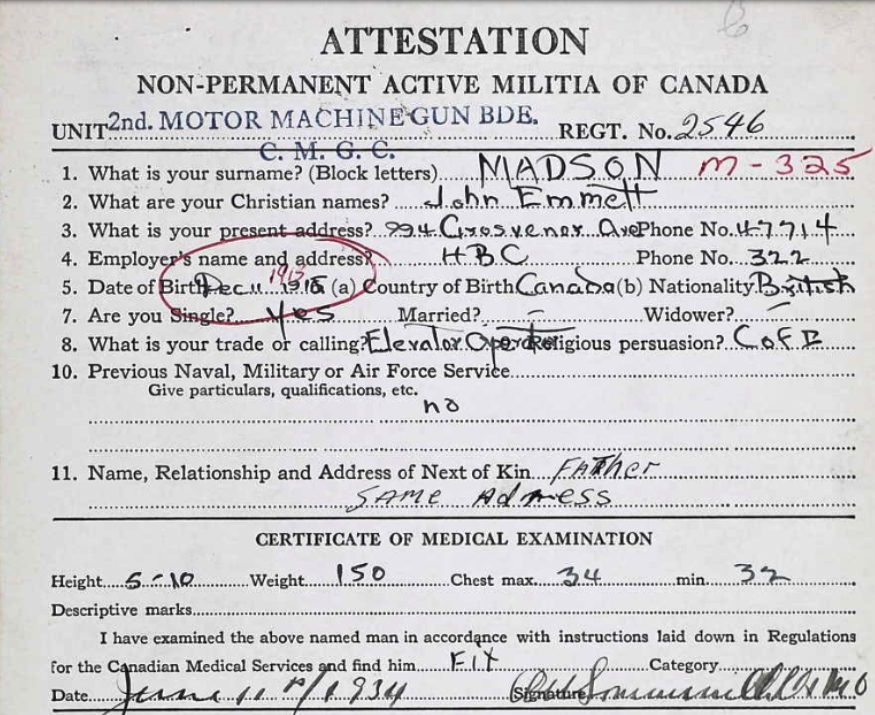 ATTESTATION
NON-PERMANENT ACTIVE MILITIA OF CANADA
UNIT 2nd. MOTOR MACHINE GUN BDE. REGT. No. 2546
C. M. G. C.
1. What is your surname? (Block letters) MADSON M-325
2. What are your Christian names? John Emmett
3. What is your present address? 994 Grosvenor Ave Phone No. 47714
4. Employer's name and address? HBC Phone No. 322
1915
5. Date of Birth Dec 11 (a) Country of Birth Canada (b) Nationality British
7. Are you Single? Yes Married? – Widower? –
8. What is your trade or calling? Elevator Operator Religious persuasion? C of E
10. Previous Naval, Military or Air Force Service
Give particulars, qualifications, etc.
no
11. Name, Relationship and Address of Next of Kin FATHER
SAME Address
CERTIFICATE OF MEDICAL EXAMINATION
Height 5-10 Weight 150 Chest max. 34 min. 32
Descriptive marks
I have examined the above named man in accordance with instructions laid down in Regulations
for the Canadian Medical Services and find him Fit Category
Date June 11th/1934 Signature MO